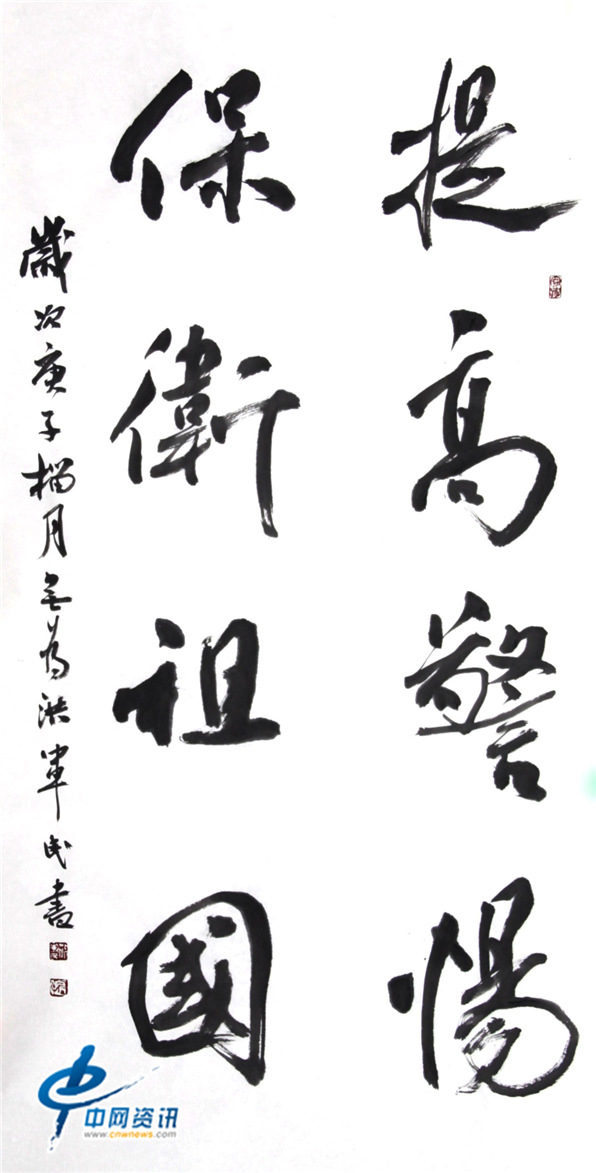 提高警惕
保衛祖國
歲次庚子榴月無為洪軍民書
中网资讯
www.cnwnews.com